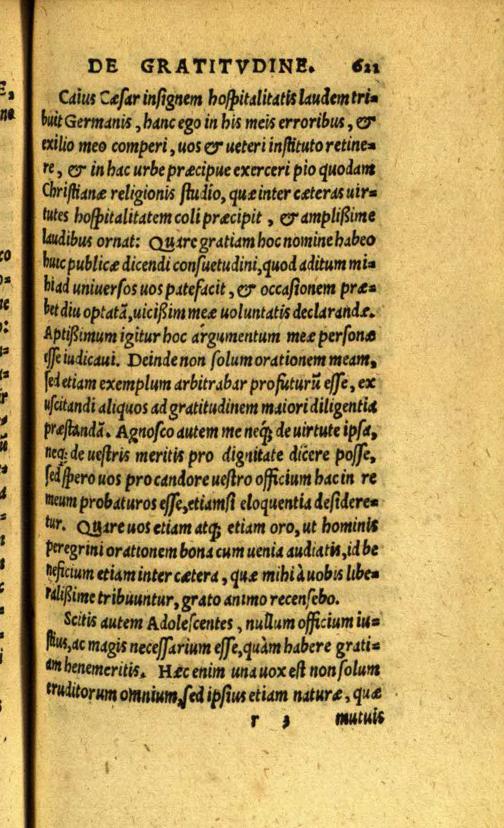 DE GRATITVDINE. 621
Caius Cæsar insignem hospitalitatis laudem tri-
buit Germanis, hanc ego in his meis erroribus, &
exilio meo comperi, uos & ueteri instituto retine-
re, & in hac urbe præcipue exerceri pio quodam
Christianæ religionis studio, quæ inter cæteras uir-
tutes hospitalitatem coli præcipit, & amplißime
laudibus ornat: Quare gratiam hoc nomine habeo
huic publicæ dicendi consuetudini, quod aditum mi-
hi ad uniuersos uos patefacit, & occasionem præ-
bet diu optatā, uicißim meæ uoluntatis declarandæ.
Aptißimum igitur hoc argumentum meæ personæ
esse iudicaui. Deinde non solum orationem meam,
sed etiam exemplum arbitrabar profuturū esse, ex
uscitandi aliquos ad gratitudinem maiori diligentia
præstandā. Agnosco autem me neq; de uirtute ipsa,
neq; de uestris meritis pro dignitate dicere posse,
sed spero uos pro candore uestro officium hac in re
meum probaturos esse, etiamsi eloquentia desidere-
tur. Quare uos etiam atq; etiam oro, ut hominis
peregrini orationem bona cum uenia audiatis, id be
neficium etiam inter cætera, quæ mihi à uobis libe-
ralißime tribuuntur, grato animo recensebo.
Scitis autem Adolescentes, nullum officium iu-
stius, ac magis necessarium esse, quàm habere grati-
am benemeritis. Hæc enim una uox est non solum
eruditorum omnium, sed ipsius etiam naturæ, quæ
r 3 mutuis